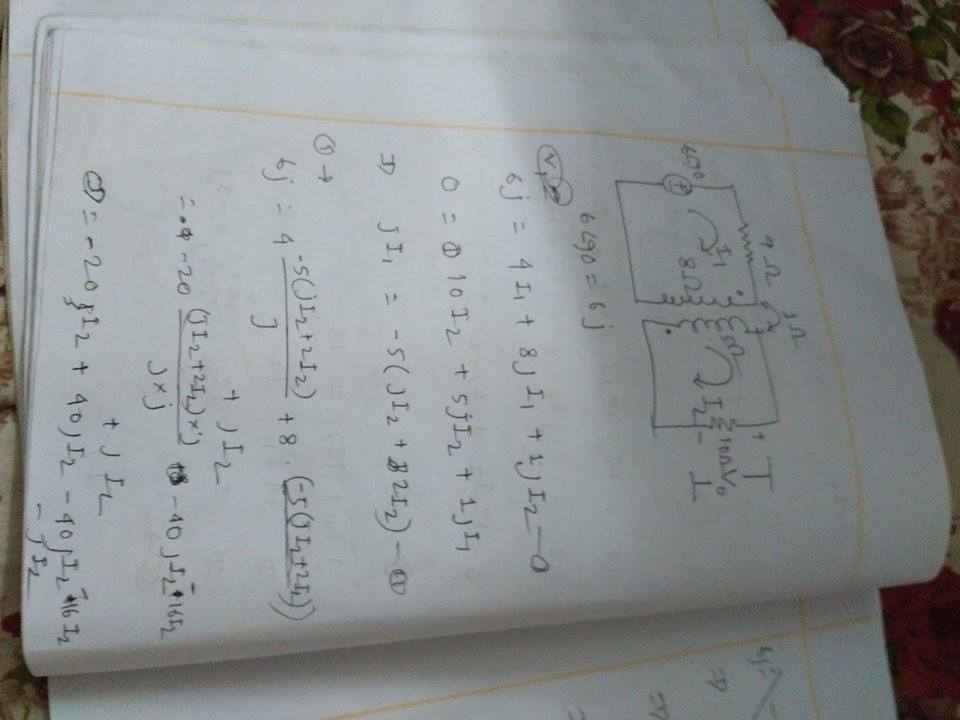 1Ω
4Ω
I₁
6∠90
8Ω
5Ω
I₂
10Ω
+
V₀
-
6∠90 = 6j
6j = 4I₁ + 8jI₁ + 1jI₂ —
0 = 10I₂ + 5jI₂ + 1jI₁
⇒ jI₁ = -5(jI₂ + 2I₂) — ⑪
① →
6j = 4 \frac{-5(jI₂+2I₂)}{j} + 8 · (-5(jI₂+2I₂))
+ jI₂
= -20 \frac{(jI₂+2I₂)×j}{j×j} - 40jI₂ - 16I₂
+ jI₂
= -20 I₂ + 40jI₂ - 40jI₂ - 16I₂
- jI₂